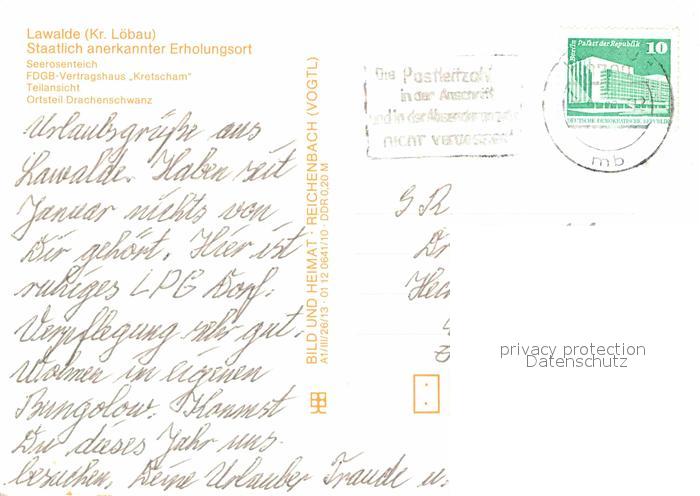 Lawalde (Kr. Löbau)
Staatlich anerkannter Erholungsort
Seerosenteich
FDGB-Vertragshaus „Kretscham"
Teilansicht
Ortsteil Drachenschwanz
Urlaubsgrüße aus
Lawalde. Haben seit
Januar nichts von
Dir gehört. Hier ist
ruhiges LPG Dorf.
Verpflegung sehr gut.
Wohnen im eigenen
Bungolow. Kommst
Du dieses Jahr uns
besuchen. Deine Urlauber Traude u.
BILD UND HEIMAT · REICHENBACH (VOGTL)
A1/III/26/13 · 01 12 0641/10 · DDR 0,20 M
Die Postleitzahl
in der Anschrift
und in der Absenderangabe
NICHT VERGESSEN!
Berlin Palast der Republik 10
DEUTSCHE DEMOKRATISCHE REPUBLIK
mb
privacy protection
Datenschutz